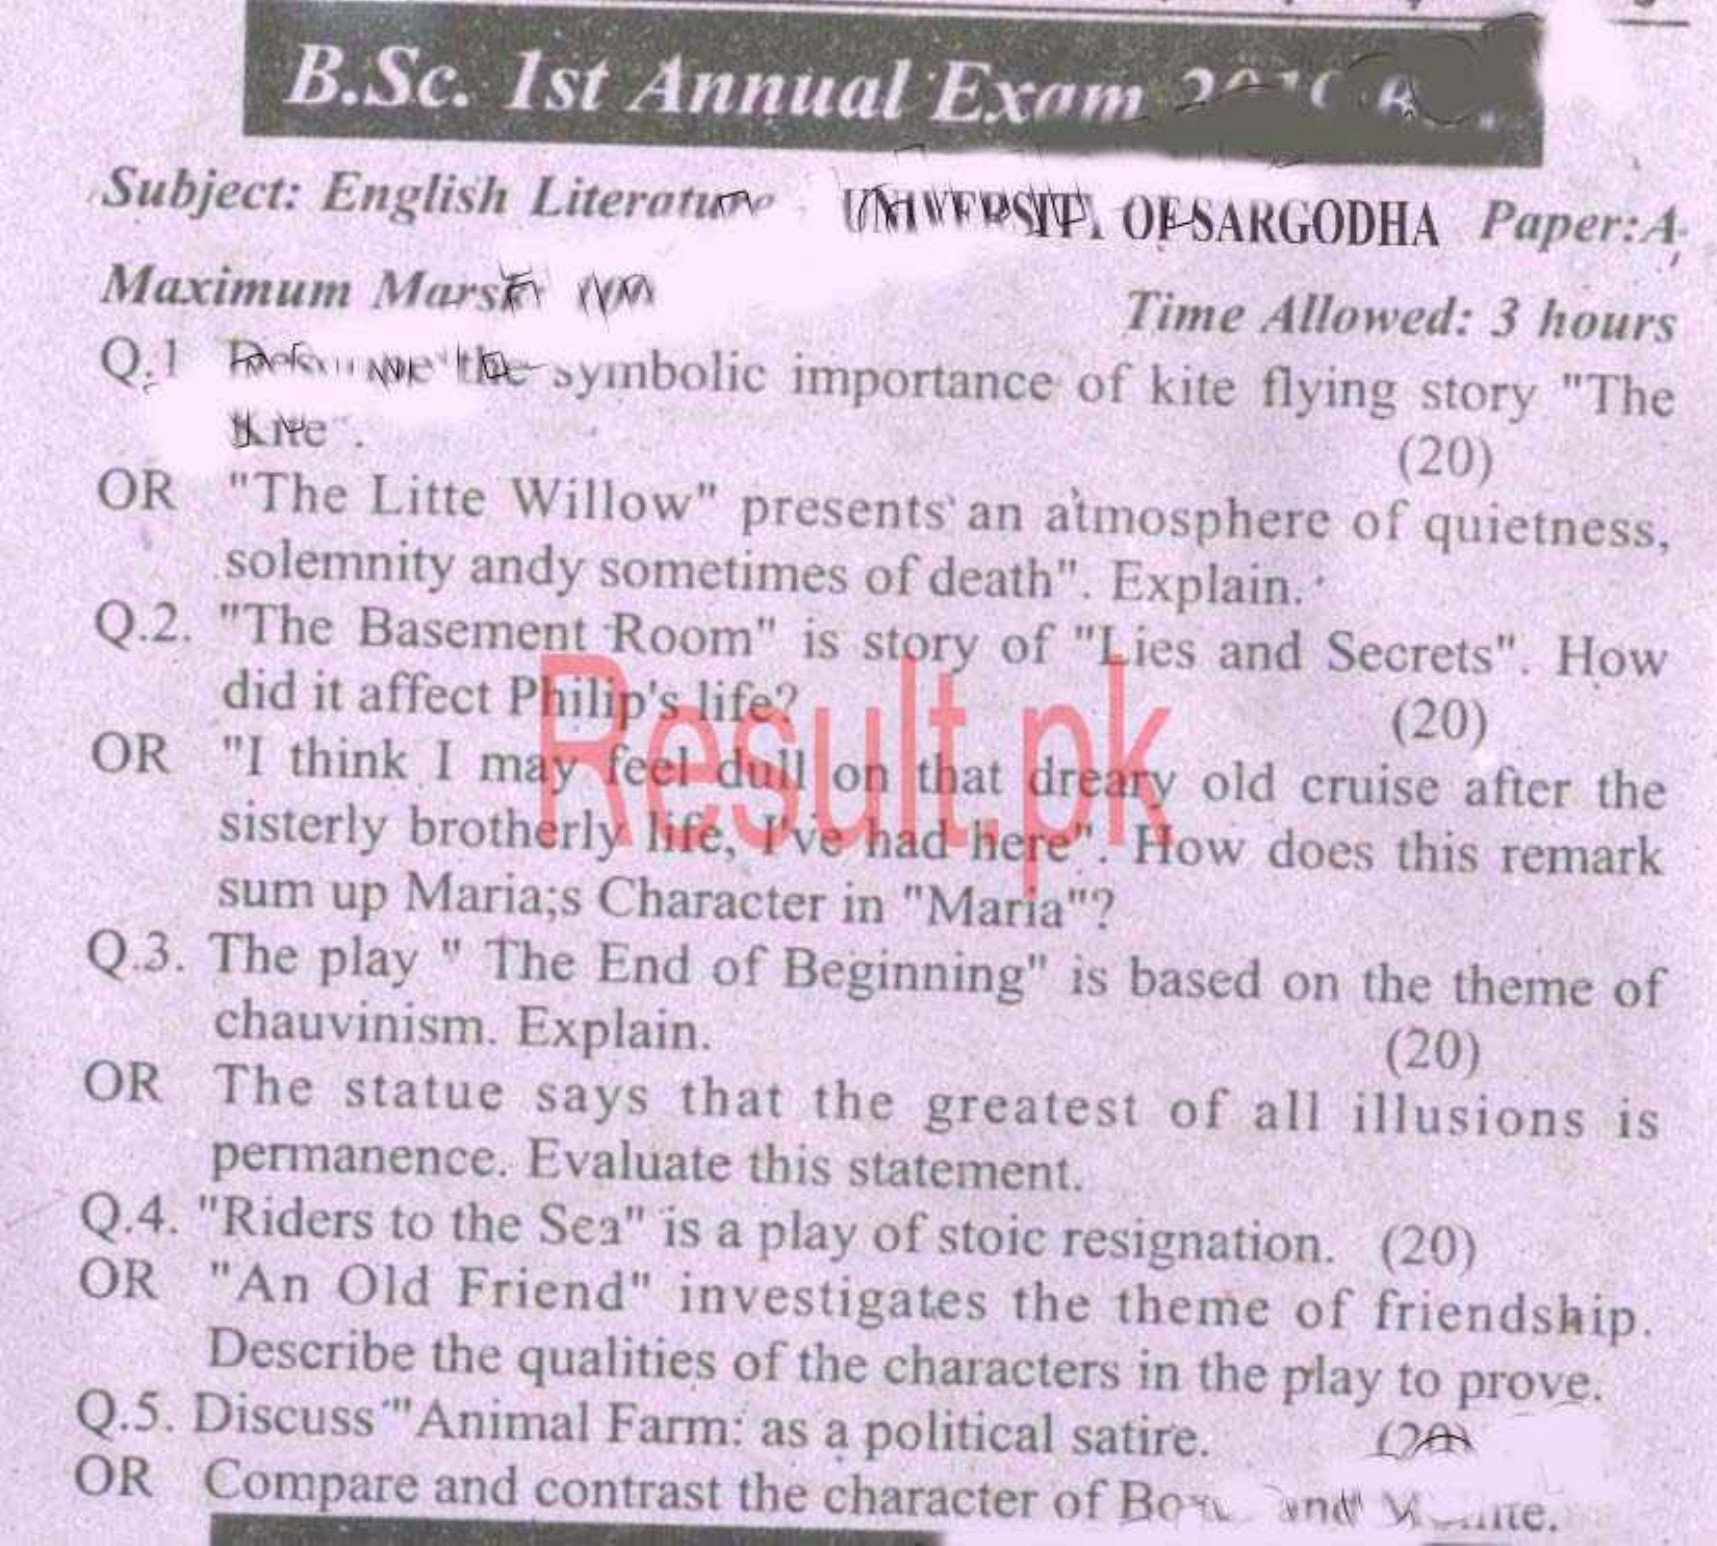 B.Sc. 1st Annual Exam
Subject: English Literature UNIVERSITY OF SARGODHA Paper:A
Maximum Marsk
Time Allowed: 3 hours
Q.1 the symbolic importance of kite flying story "The
Kite".
(20)
OR "The Litte Willow" presents an atmosphere of quietness,
solemnity andy sometimes of death". Explain.
Q.2. "The Basement Room" is story of "Lies and Secrets". How
did it affect Philip's life? (20)
OR "I think I may feel dull on that dreary old cruise after the
sisterly brotherly life, I've had here". How does this remark
sum up Maria;s Character in "Maria"?
Q.3. The play " The End of Beginning" is based on the theme of
chauvinism. Explain. (20)
OR The statue says that the greatest of all illusions is
permanence. Evaluate this statement.
Q.4. "Riders to the Sea" is a play of stoic resignation. (20)
OR "An Old Friend" investigates the theme of friendship.
Describe the qualities of the characters in the play to prove.
Q.5. Discuss "'Animal Farm: as a political satire. (20)
OR Compare and contrast the character of and
Result.pk